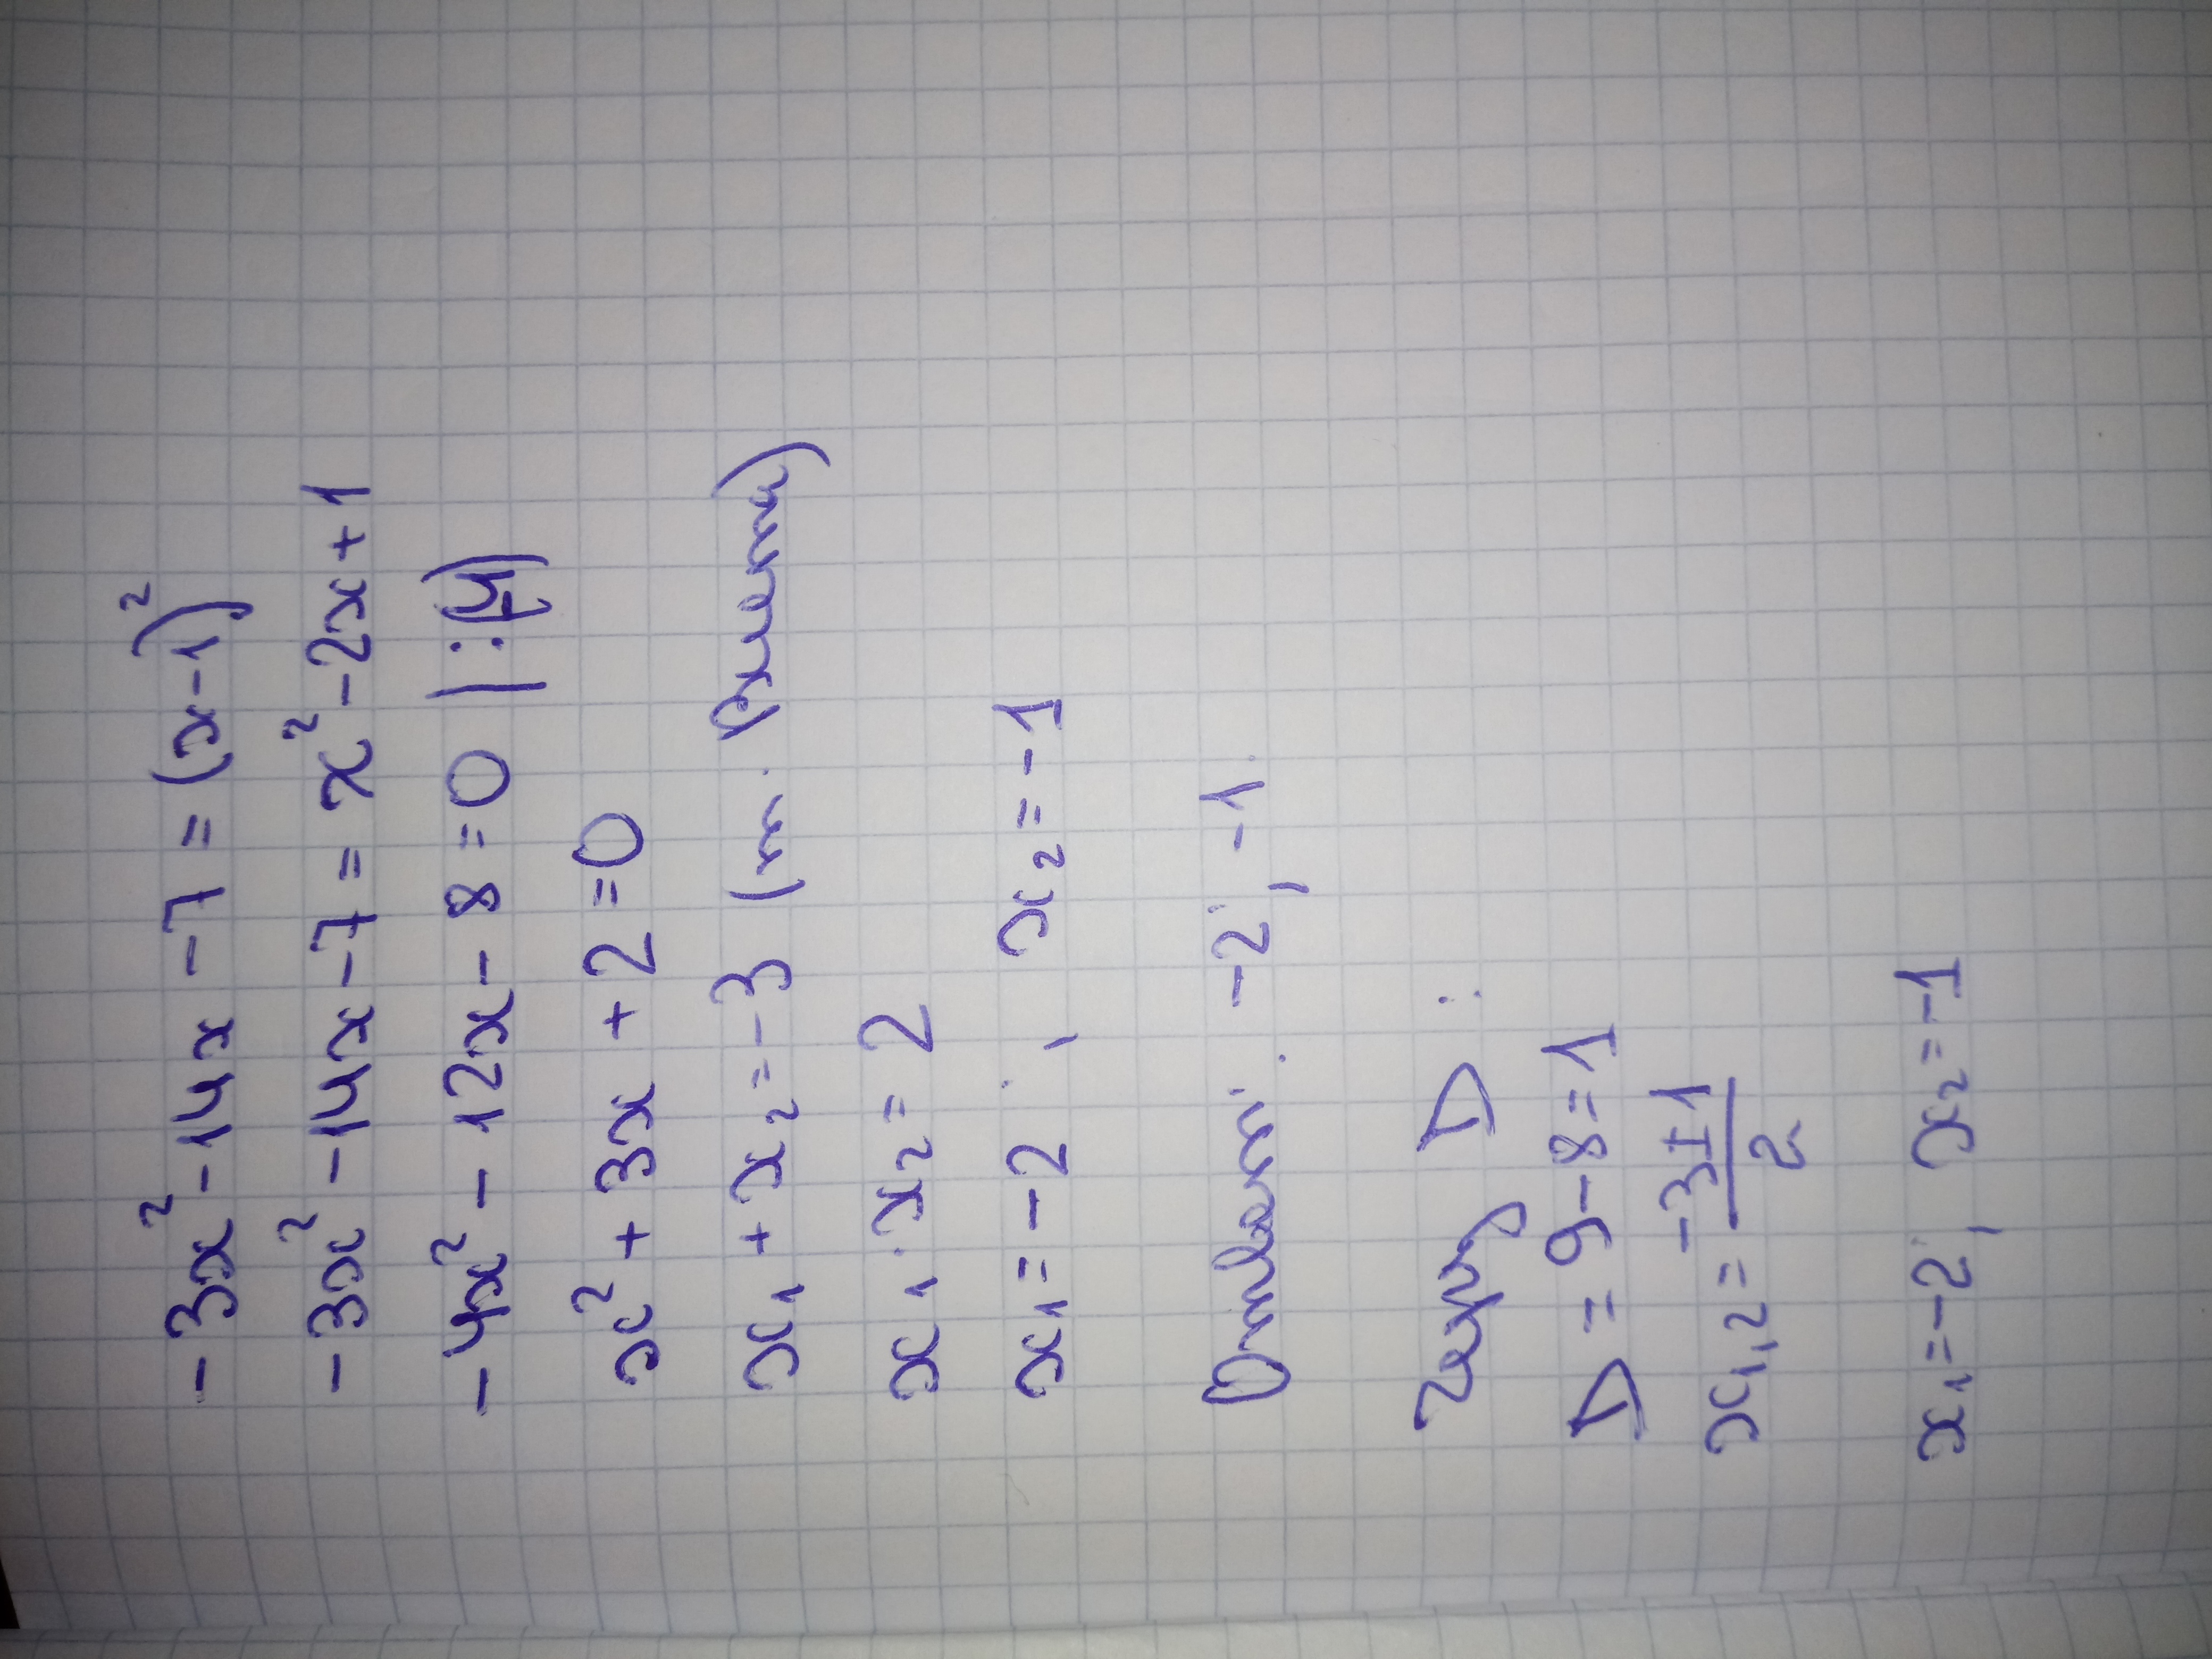 -3x²-14x-7=(x-1)²
-3x²-14x-7=x²-2x+1
-4x²-12x-8=0 |:(-4)
x²+3x+2=0
x₁+x₂=-3 (т. Виета)
x₁·x₂=2
x₁=-2; x₂=-1
Ответ: -2; -1.
Через D:
D=9-8=1
x₁,₂=(-3±1)/2
x₁=-2; x₂=-1